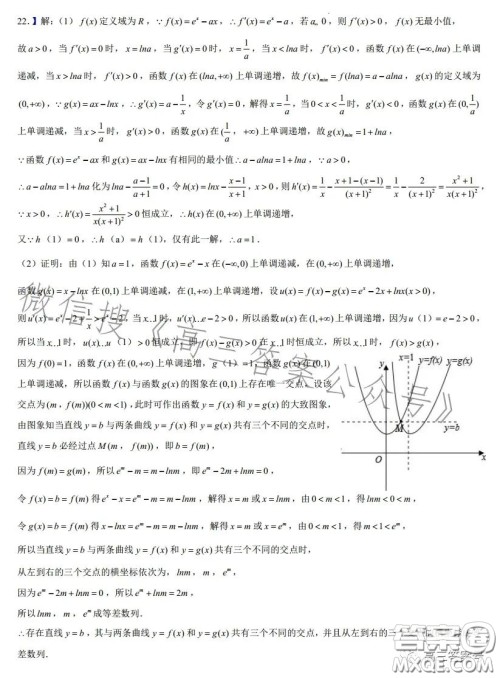 22.】解:(1) f(x)定义域为R，∵f(x)=eˣ−ax，∴f′(x)=eˣ−a，若a„0，则f′(x)>0，f(x)无最小值，
故a>0，当f′(x)=0时，x=lna，当g′(x)=0时，x=1/a，当x<lna时，f′(x)<0，函数f(x)在(−∞,lna)上单调
递减，当x>lna时，f′(x)>0，函数f(x)在(lna,+∞)上单调递增，故f(x)min=f(lna)=a−alna，g(x)的定义域为
(0,+∞)，∵g(x)=ax−lnx，∴g′(x)=a−1/x，令g′(x)=0，解得x=1/a，当0<x<1/a时，g′(x)<0，函数g(x)在(0,1/a)
上单调递减，当x>1/a时，g′(x)>0，函数g(x)在(1/a，+∞)上单调递增，故g(x)min=1+lna，
∵函数f(x)=eˣ−ax和g(x)=ax−lnx有相同的最小值∴a−alna=1+lna，∵a>0，
∴a−alna=1+lna化为lna−(a−1)/(a+1)=0，令h(x)=lnx−(x−1)/(x+1)，x>0，则h′(x)=1/x−(x+1−(x−1))/(x+1)²=1/x−2/(x+1)²=(x²+1)/(x(x+1)²)，
∵x>0，∴h′(x)=(x²+1)/(x(x+1)²)>0恒成立，∴h(x)在(0,+∞)上单调递增，
又∵h（1）=0，∴h（a）=h（1），仅有此一解，∴a=1．
(2) 证明：由（1）知a=1，函数f(x)=eˣ−x在(−∞,0)上单调递减，在(0,+∞)上单调递增，
函数g(x)=x−lnx在(0,1)上单调递减，在(1,+∞)上单调递增，设u(x)=f(x)−g(x)=eˣ−2x+lnx(x>0)，
则u′(x)=eˣ−2+1/x>eˣ−2，当x…1时，u′(x)…e−2>0，所以函数u(x)在(1,+∞)上单调递增，因为u（1）=e−2>0，
所以当x…1时，u(x)…u（1）>0恒成立，即f(x)−g(x)>0在x…1时恒成立，所以x…1时，f(x)>g(x)，
因为f(0)=1，函数f(x)在(0,+∞)上单调递增，g（1）=1，函数g(x)在(0,1)
上单调递减，所以函数f(x)与函数g(x)的图象在(0,1)上存在唯一交点，设该
交点为(m，f(m))(0<m<1)，此时可作出函数y=f(x)和y=g(x)的大致图象，
由图象知当直线y=b与两条曲线y=f(x)和y=g(x)共有三个不同的交点时，
直线y=b必经过点M(m，f(m))，即b=f(m)，
因为f(m)=g(m)，所以eᵐ−m=m−lnm，即eᵐ−2m+lnm=0，
令f(x)=b=f(m)得eˣ−x=eᵐ−m=m−lnm，解得x=m或x=lnm，由0<m<1，得lnm<0<m，
令g(x)=b=f(m)得x−lnx=eᵐ−m=m−lnm，解得x=m或x=eᵐ，由0<m<1，得m<1<eᵐ，
所以当直线y=b与两条曲线y=f(x)和y=g(x)共有三个不同的交点时，
从左到右的三个交点的横坐标依次为，lnm，m，eᵐ，
因为eᵐ−2m+lnm=0，所以eᵐ+lnm=2m，
所以lnm，m，eᵐ成等差数列．
∴存在直线y=b，其与两条曲线y=f(x)和y=g(x)共有三个不同的交点，并且从左到右的三个
差数列．
x=1
y=f(x)
y=g(x)
M
y=b
O
x
微信搜《高三答案公众号》
答案圈
MXQE.COM